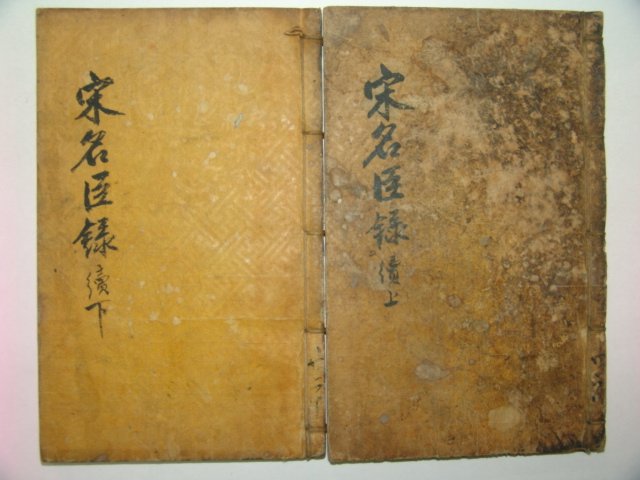 宋名臣錄 續下
宋名臣錄 續上